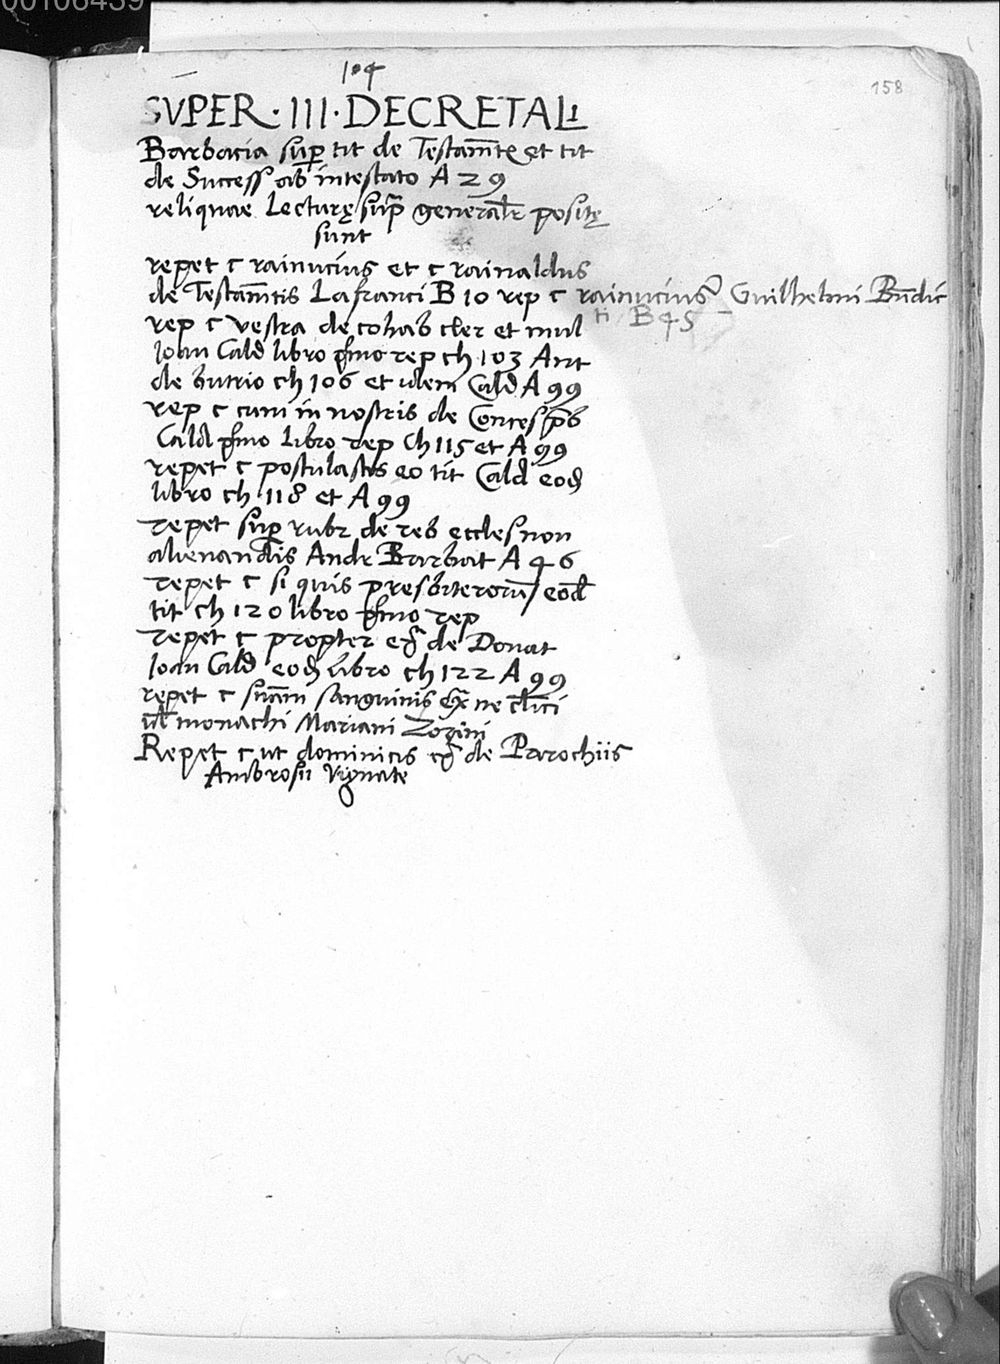 00106439
104
158
SVPER · III · DECRETALI
Barbacia sup tit de Testam̄tꝭ et tit
de Success ab intestato A 29
reliquae Lecturę sup̄ generalr̄ positę
sunt
repet c rainucius et c rainaldus
de Testam̄tis Lafranci B 10 rep c rainucius Guilhelmi Bn̄dic
ti B 45
rep c vestra de cohab cler et mul
Ioan Cald libro p̄mo rep ch 103 Ant
de butrio ch 106 et idem Cald A 99
rep c cum in nostris de Conces p̄b
Cald p̄mo Libro rep Ch 115 et A 99
repet c postulastis eo tit Cald eod
libro ch 118 et A 99
repet sup rubr de reb eccles non
alienandis Andr Barbat A 46
repet c si quis presbiterorū eod
tit ch 120 libro p̄mo rep
repet c propter de Donat
Ioan Cald eod libro ch 122 A 99
repet c suam̄ sanguinis ne cl̄ici
ul̄ monachi Mariani Zozini
Repet c ut dominicis de Parochiis
Ambrosii Vignate